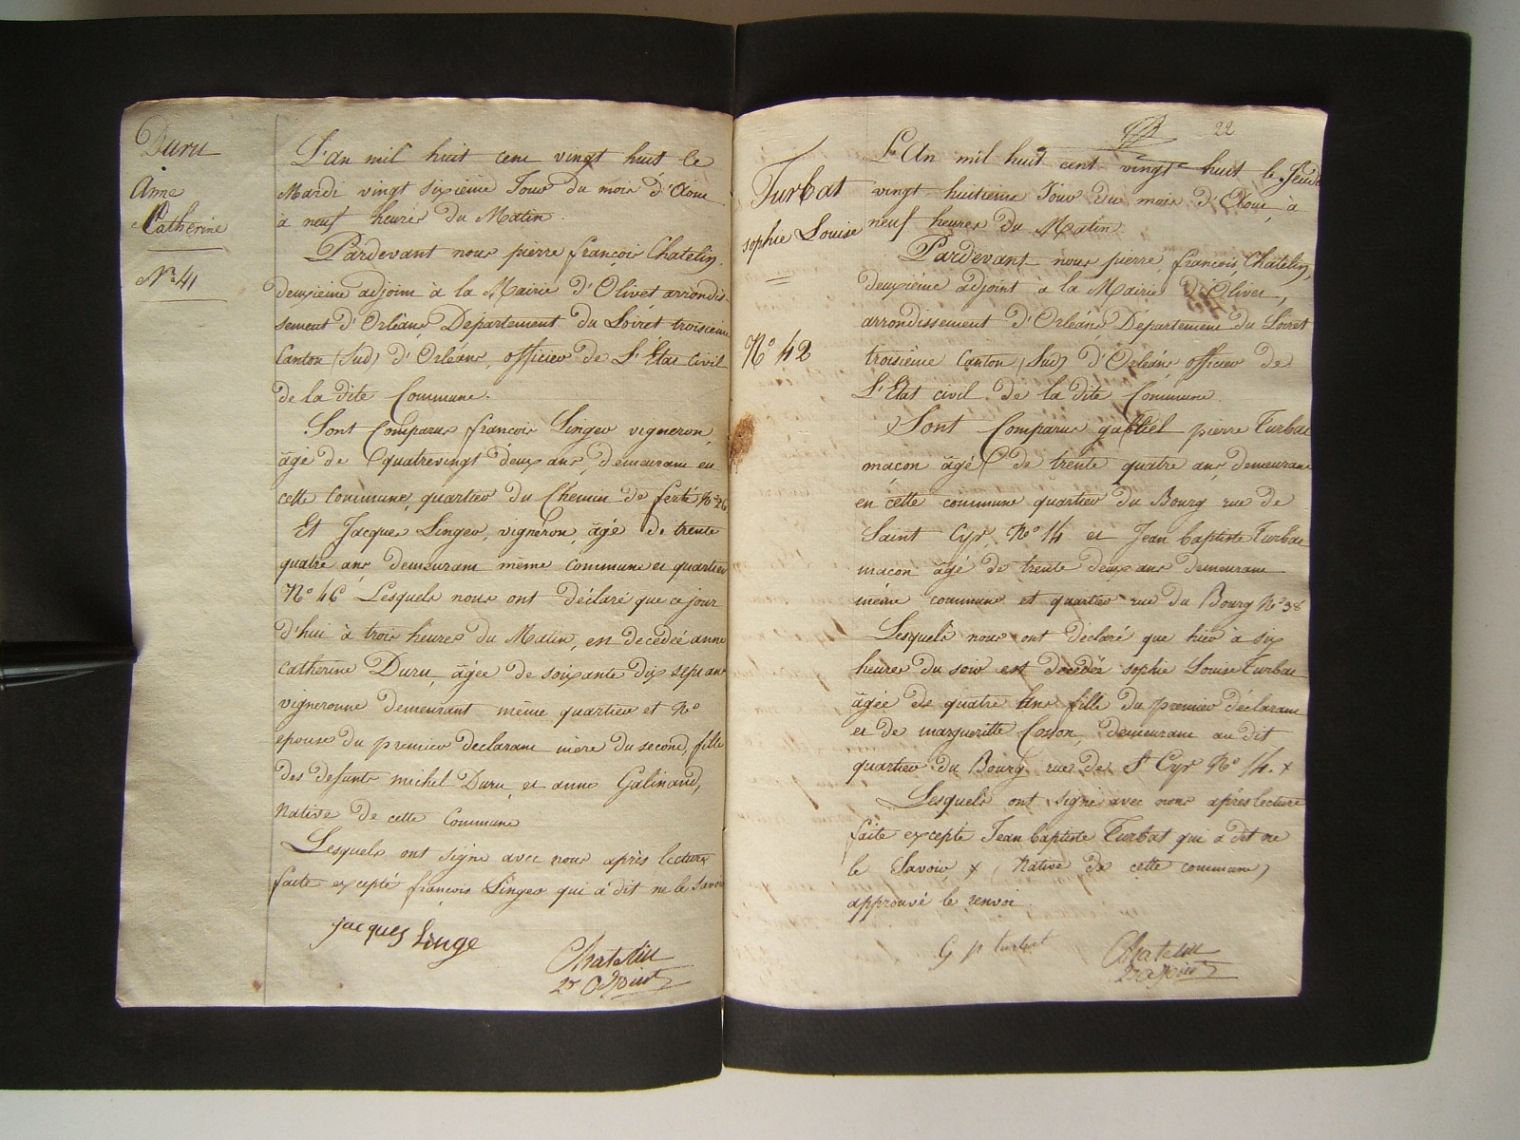 Duru
Anne
Catherine
No 41
L'an mil huit cent vingt huit le
Mardi vingt sixieme Jour du mois d'Aout
à neuf heures du Matin.
Pardevant nous pierre françois Chatelin,
deuxieme adjoint à la Mairie d'Olivet arrondis-
sement d'Orléans, Departement du Loiret troisieme
Canton (Sud) d'Orléans, officier de L'Etat Civil
de la dite Commune.
Sont Comparus françois Linger vigneron,
âgé de quatrevingt deux ans, demeurant en
cette Commune, quartier du Chemin de ferté No 26
Et Jacques Linger, vigneron, âgé de trente
quatre ans demeurant même commune et quartier
No 46 Lesquels nous ont déclaré que ce jour
d'hui à trois heures du Matin, est decedée anne
Catherine Duru, âgée de soixante dix sept ans
vigneronne demeurant même quartier et No
epouse du premier declarant mere du second, fille
des defunts michel Duru, et anne Galinand,
Native de cette Commune
Lesquels ont signé avec nous après lecture
faite excepté françois Linger qui a dit ne le savoir
jacques Linge
Chatelin
2e adjoint
22
Turbat
sophie Louise
No 42
L'An mil huit cent vingt huit le Jeudi
vingt huitieme Jour du mois d'Aout, à
neuf heures du Matin.
Pardevant nous pierre, françois, Chatelin,
deuxieme adjoint a la Mairie d'Olivet,
arrondissement d'Orléans, Departement du Loiret
troisième Canton (Sud) d'Orléans officier de
L'Etat civil de la dite Commune.
Sont Comparus gabriel pierre Turbat
maçon âgé de trente quatre ans demeurant
en cette commune quartier du Bourg rue de
Saint Cyr, No 14 et Jean baptiste Turbat
macon âgé de trente deux ans demeurant
même commune et quartier rue du Bourg No 38
Lesquels nous ont déclaré que hier à six
heures du soir est decedée sophie Louise Turbat
âgée de quatre ans fille du premier déclarant
et de margueritte Cosson, demeurant au dit
quartier du Bourg rue de St Cyr No 14. x
Lesquels ont signé avec nous après lecture
faite excepté Jean baptiste Turbat qui a dit ne
le Savoir x (Native de cette commune)
approuvé le renvoi
G p turbat
Chatelin
2e adjoint